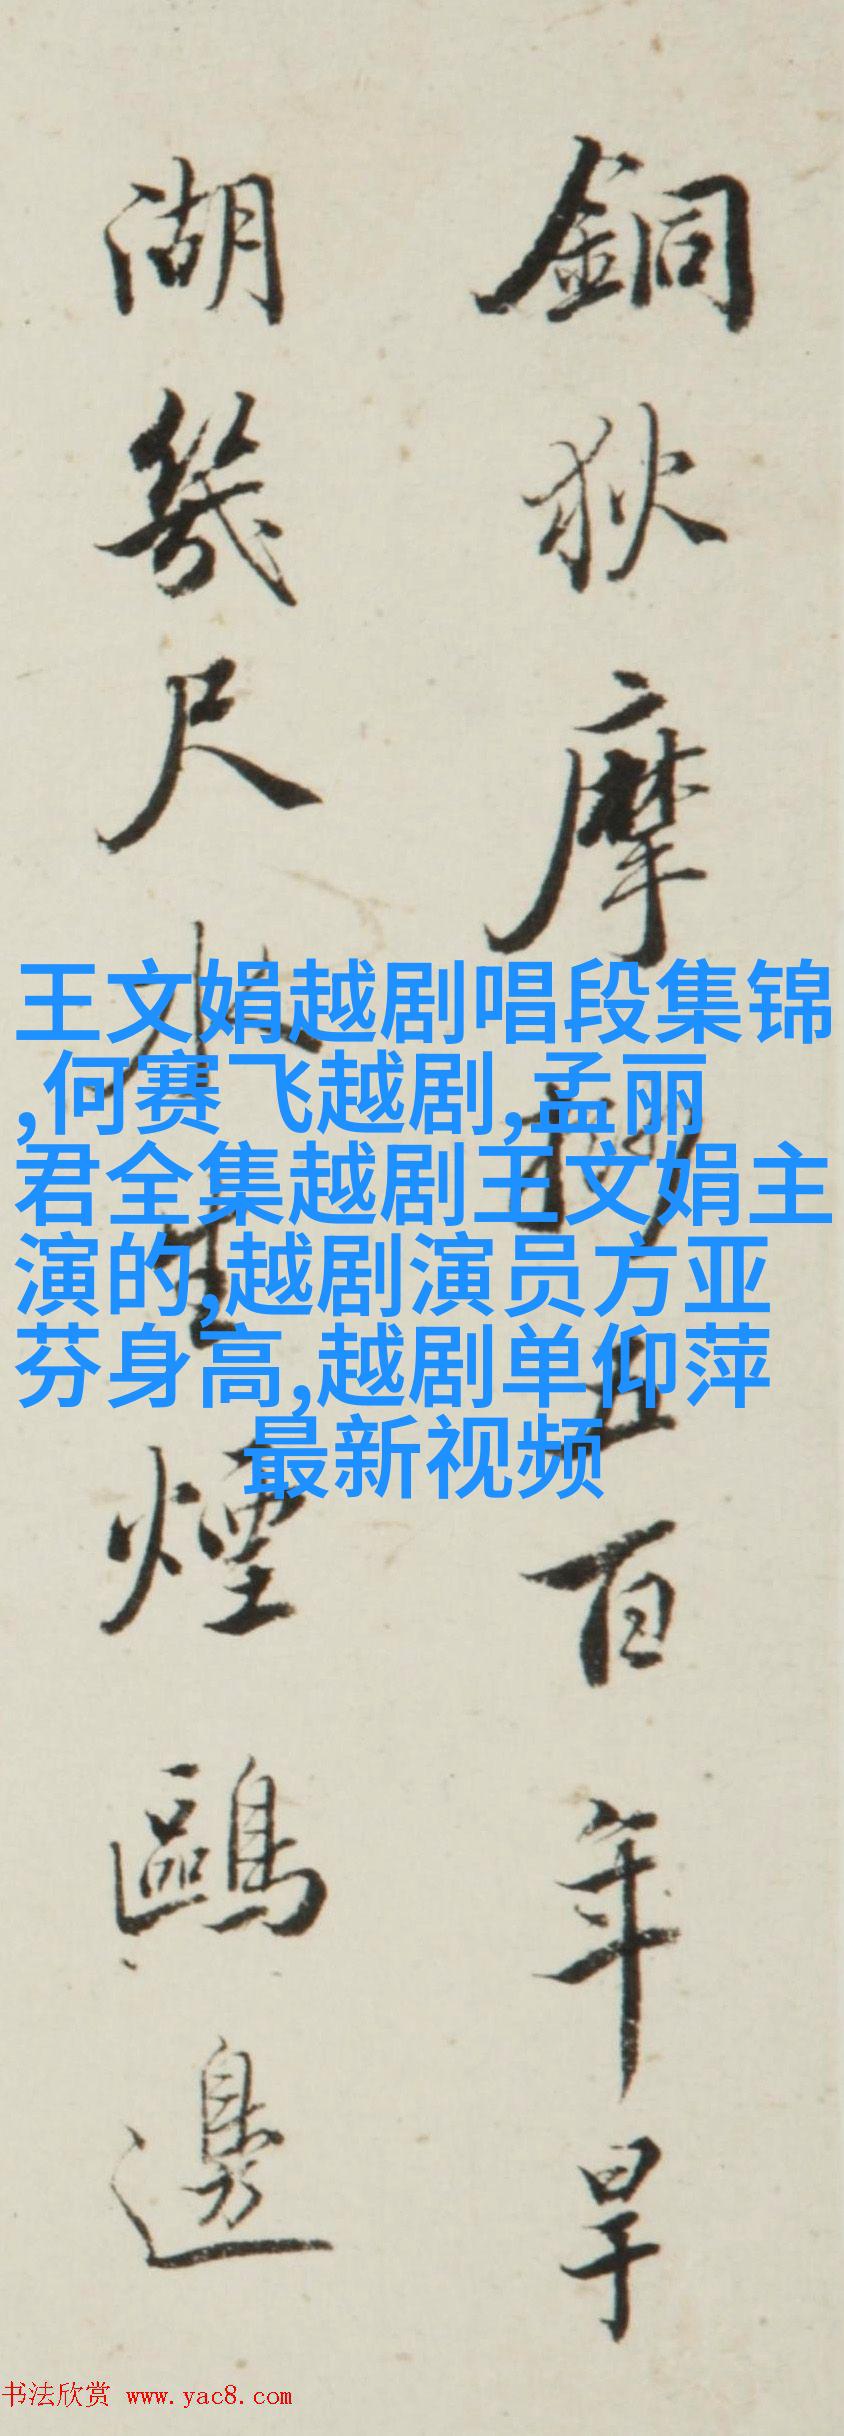 銅狄摩五百年旱
湖幾尺水生煙鷗邊
王文娟越剧唱段集锦
,何赛飞越剧,孟丽
君全集越剧王文娟主
演的,越剧演员方亚
芬身高,越剧单仰萍
最新视频
书法欣赏 www.yac8.com